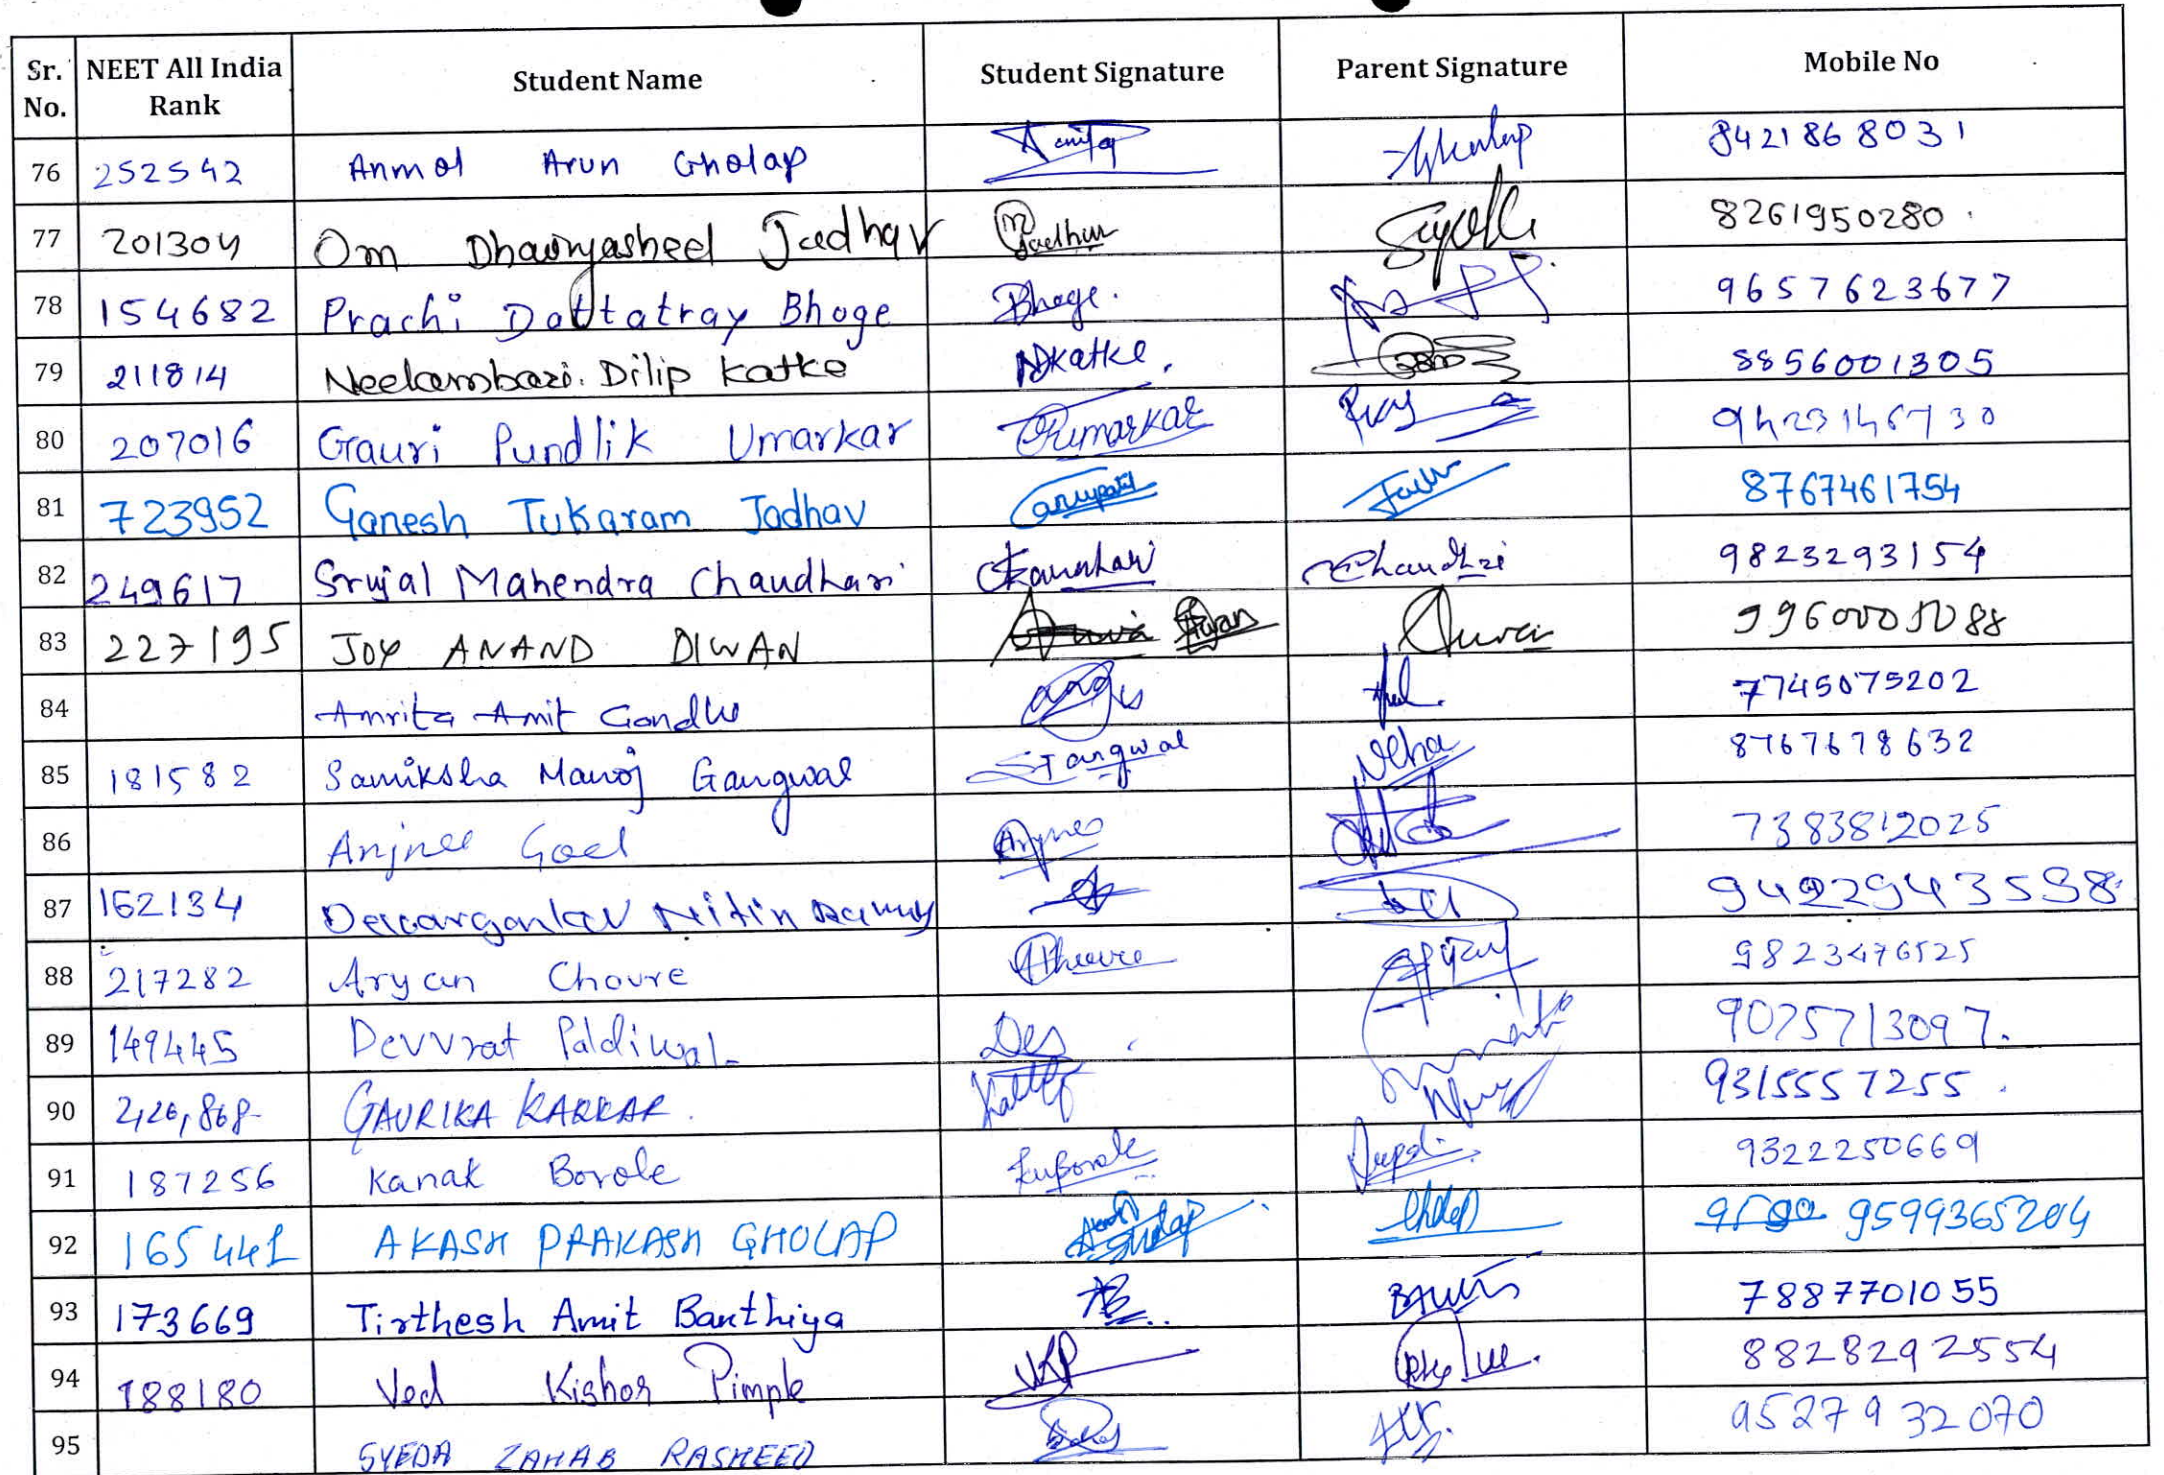 Sr. No. NEET All India Rank Student Name Student Signature Parent Signature Mobile No
76 252542 Anmol Arun Gholap 8421868031
77 201304 Om Dhairyasheel Jadhav Jadhav 8261950280
78 154682 Prachi Dattatray Bhoge Bhoge. 9657623677
79 211814 Neelambari. Dilip Katke NDKatke. 8856001305
80 207016 Gauri Pundlik Umarkar GPUmarkar 9423146730
81 723952 Ganesh Tukaram Jadhav 8767461754
82 249617 Srujal Mahendra Chaudhari Chaudhri 9823293154
83 227195 JOY ANAND DIWAN
84 Amrita Amit Gandhi 7745075202
85 181582 Samiksha Manoj Gangwal SGangwal Neha 8767678632
86 Anjnee Goel Anjnee 7383812025
87 162134 Nitin
88 217282 Aryan Choure 9823476525
89 149445 Devvrat Paldiwal Dev 9075713097.
90 226,868 GAURIKA KAKKAR. 9315557255
91 187256 Kanak Borole Borole 9322250669
92 165441 AKASH PRAKASH GHOLAP Gholap 9599365204
93 173669 Tirthesh Amit Banthiya TB 7887701055
94 188180 Ved Kishor Pimple VKP 8828292554
95 SYEDA ZAHAB RASHEED 9527932070